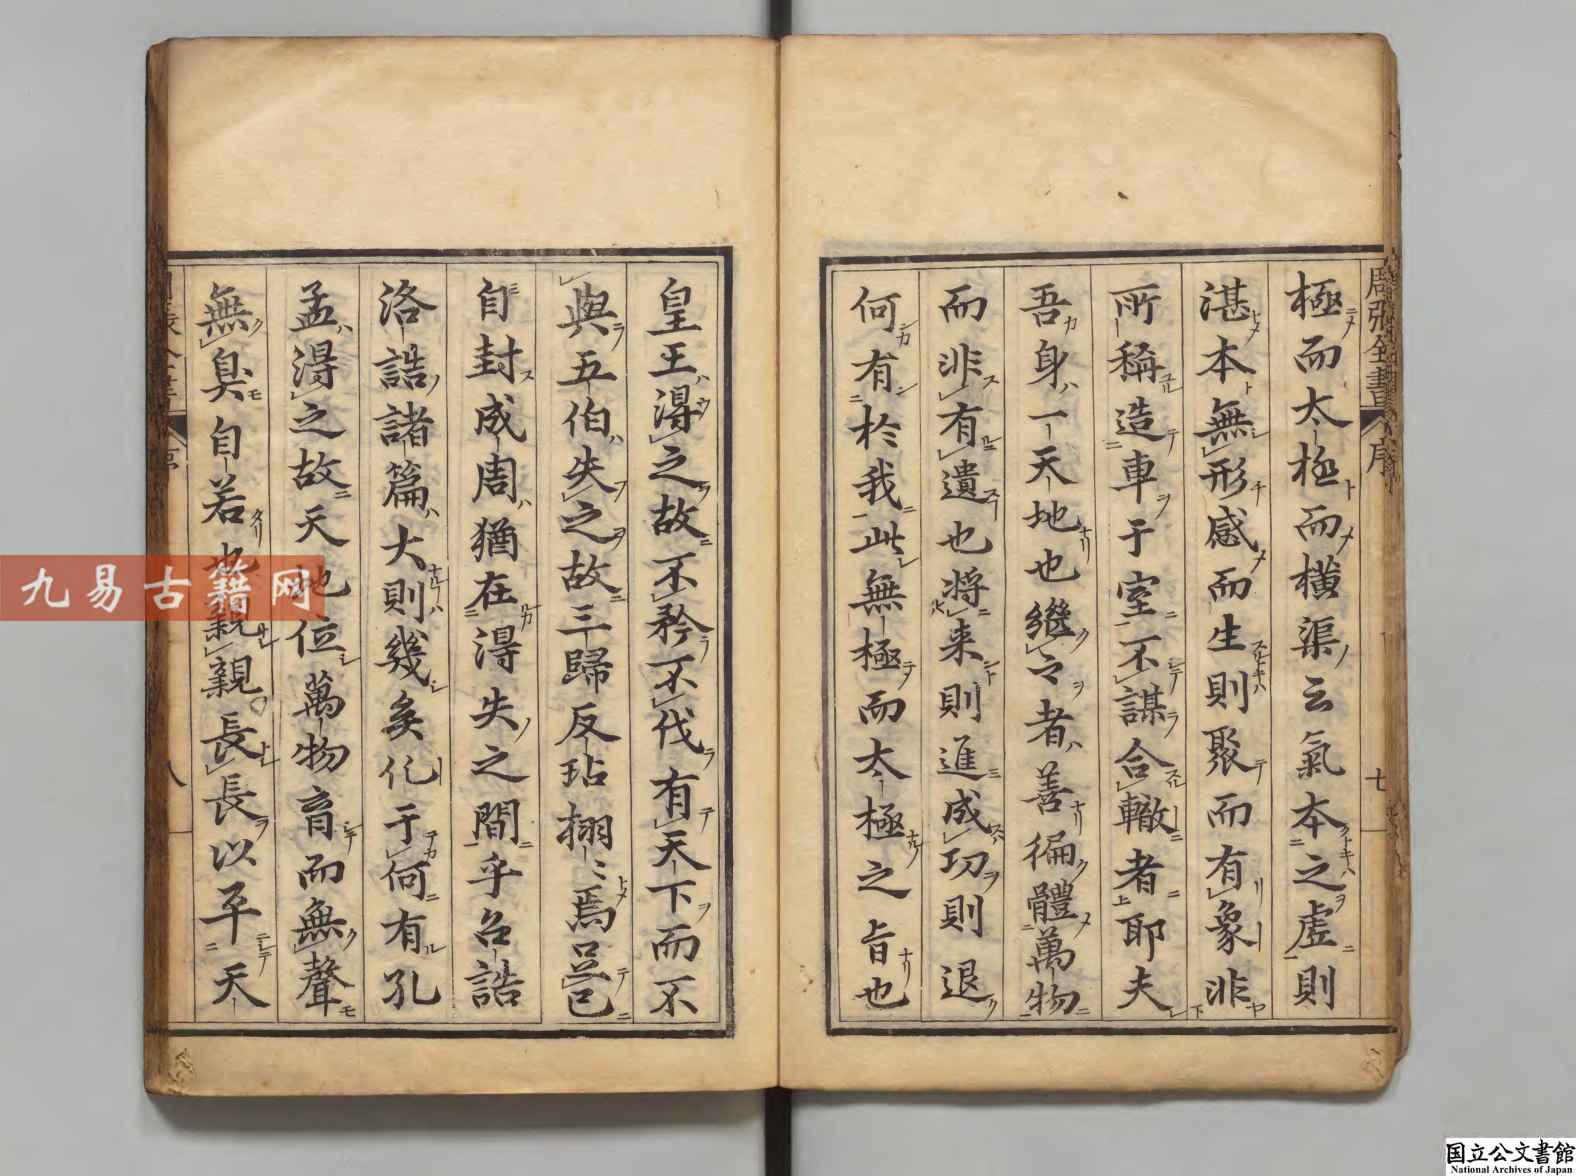 周張全書
序
七
極而太極而橫渠云氣本之虛則
湛本無形感而生則聚而有象非
所稱造車于室不謀合轍者耶夫
吾身一天地也繼之者善徧體萬物
而非有遺也將来則進成功則退
何有於我此無極而太極之旨也
皇王得之故不矜不伐有天下而不
與五伯失之故三歸反坫栩〻焉已
自封成周猶在得失之間乎召誥
洛誥諸篇大則幾矣化于何有孔
孟得之故天地位萬物育而無聲
無臭自若也親親長長以平天
八
九易古籍网
国立公文書館
National Archives of Japan